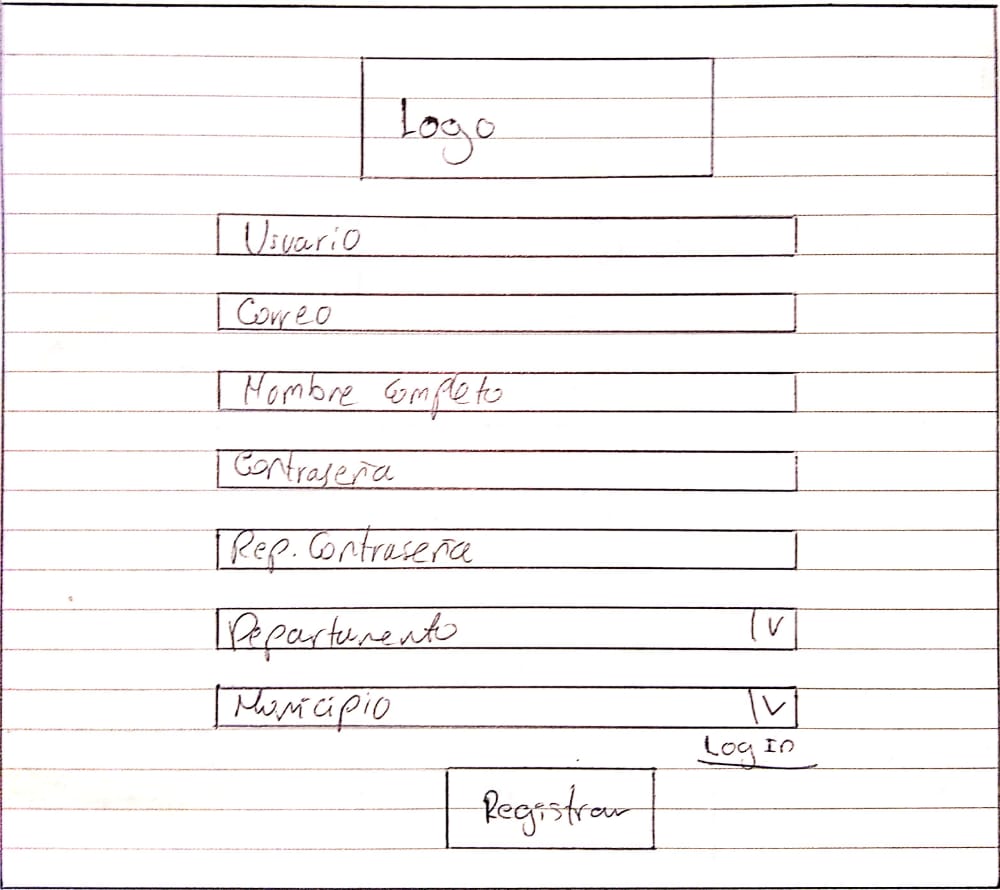 Logo
Usuario
Correo
Nombre Completo
Contraseña
Rep. Contraseña
Departamento
Municipio
Log In
Registrar